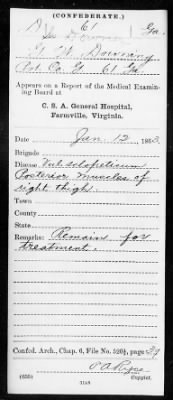 (CONFEDERATE.)
D 61 Ga.
G. W. Downing
Co. G 61 Ga.
Appears on a Report of the Medical Examin-
ing Board at
C. S. A. General Hospital,
Farmville, Virginia.
Date Jan 12 1863.
Brigade
Disease Vul. sclopeticum
Posterior muscles of
right thigh.
Town
County
State
Remarks: Remains for
treatment.
Confed. Arch., Chap. 6, File No. 526½, page 29
(635) Copyist.